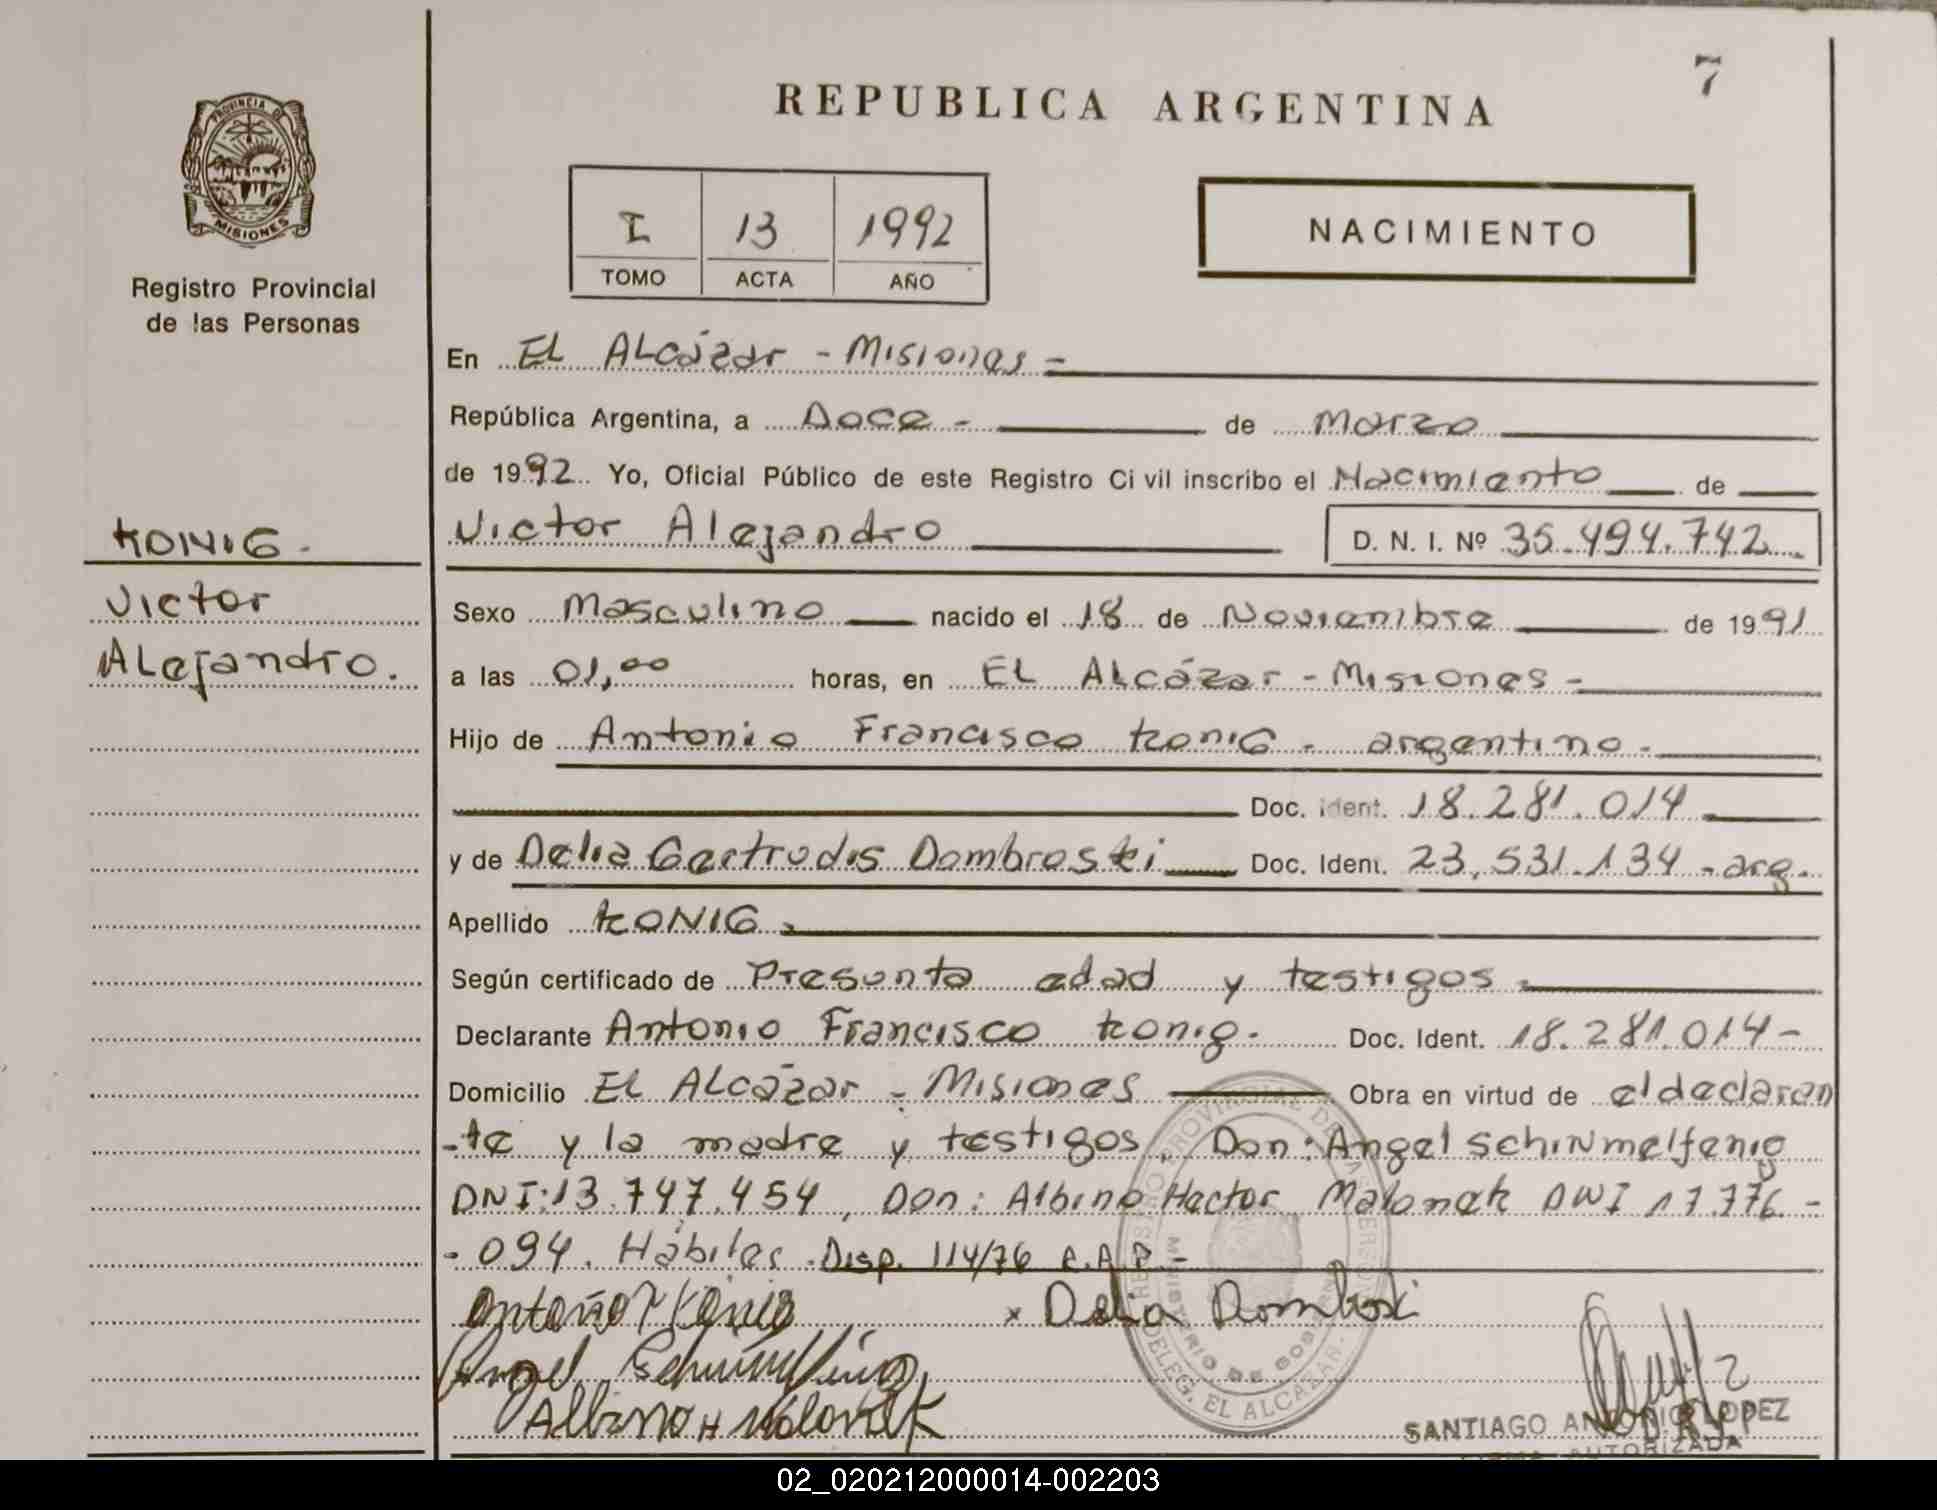 7
REPUBLICA ARGENTINA
PROVINCIA DE
MISIONES
Registro Provincial
de las Personas
I 13 1992
TOMO ACTA AÑO
NACIMIENTO
En El Alcázar - Misiones -
República Argentina, a Doce - de Marzo
de 1992 Yo, Oficial Público de este Registro Ci vil inscribo el Nacimiento de
Victor Alejandro D. N. I. Nº 35.494.742
KONIG.
Victor
Alejandro.
Sexo Masculino nacido el 18 de Noviembre de 1991
a las 01,00 horas, en El Alcázar - Misiones -
Hijo de Antonio Francisco Konig - argentino -
Doc. Ident. 18.281.014
y de Delia Gertrudis Dombroski Doc. Ident. 23.531.134 - arg.
Apellido KONIG.
Según certificado de Presunta edad y testigos.
Declarante Antonio Francisco Konig. Doc. Ident. 18.281.014 -
Domicilio El Alcázar - Misiones Obra en virtud de el declaran
-te y la madre y testigos. Don: Angel Schinmelfenig
DNI: 13.747.454, Don: Albino Hector Malonek DNI 17.776. -
- 094. Hábiles. Disp. 114/76 R.A.P. -
Antonio F Konig x Delia Dombroski
Angel
Albino H Malonek
REGISTRO PROVINCIAL DE LAS PERSONAS
MINISTERIO DE GOBIERNO
DELEG. EL ALCAZAR
SANTIAGO ANTONIO LOPEZ
FIRMA AUTORIZADA
02_020212000014-002203